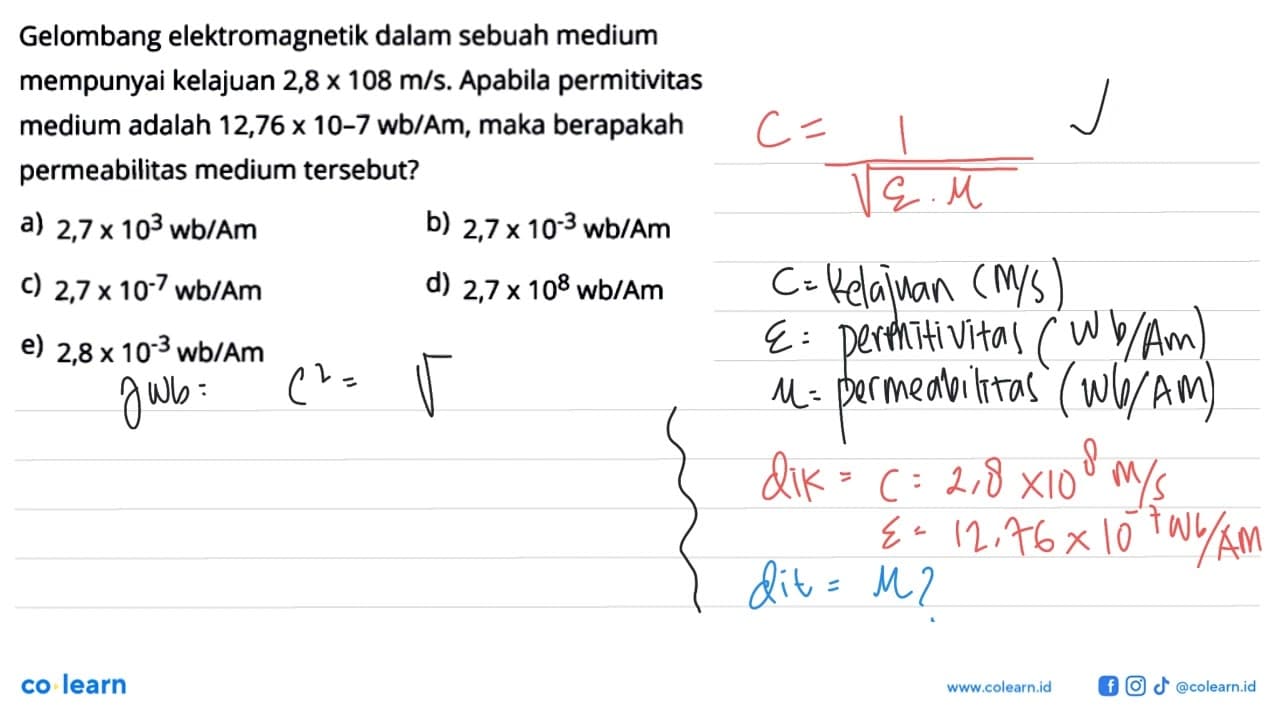 Gelombang elektromagnetik dalam sebuah medium
mempunyai kelajuan 2,8 x 108 m/s. Apabila permitivitas
medium adalah 12,76 x 10–7 wb/Am, maka berapakah
permeabilitas medium tersebut?
a) 2,7 x 10³ wb/Am
b) 2,7 x 10⁻³ wb/Am
c) 2,7 x 10⁻⁷ wb/Am
d) 2,7 x 10⁸ wb/Am
e) 2,8 x 10⁻³ wb/Am
Jwb: C² = √
C = 1 / √ε . μ ✓
C = Kelajuan (m/s)
ε = permitivitas (Wb/Am)
μ = permeabilitas (Wb/AM)
dik = C = 2,8 x10⁸ m/s
ε = 12,76 x 10⁻⁷ Wb/AM
dit = μ?
co learn
www.colearn.id
@colearn.id